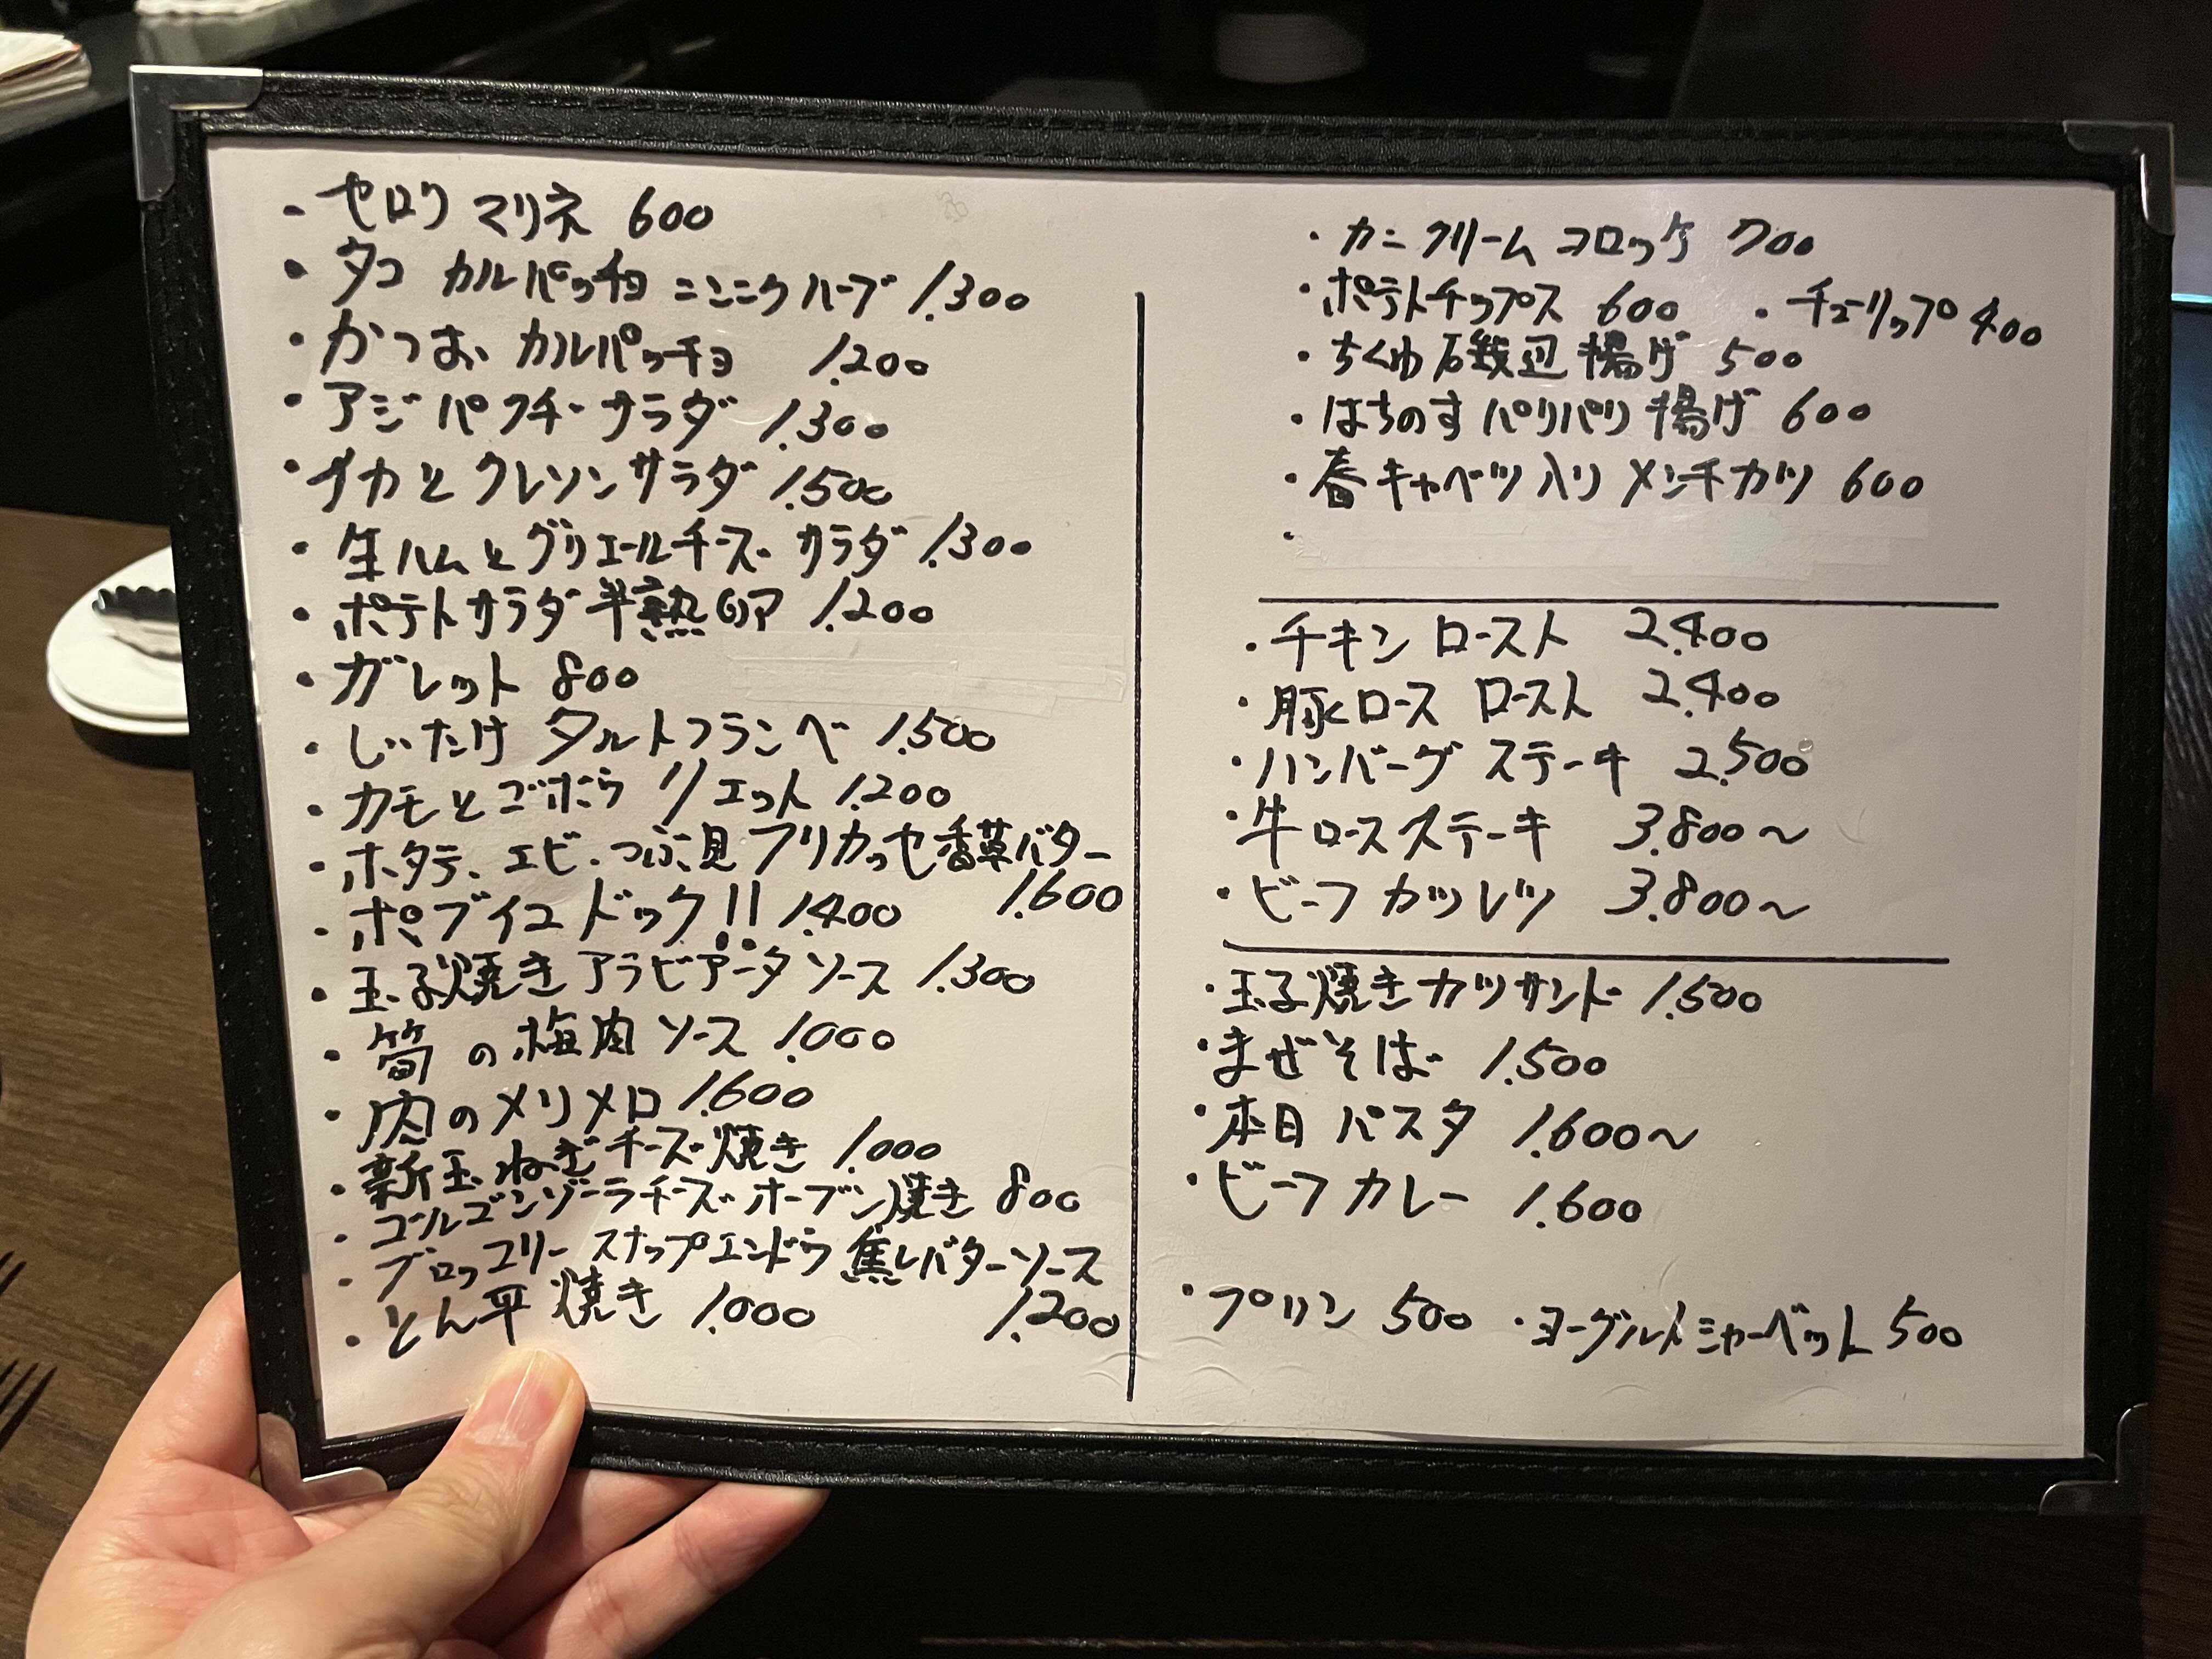 ・セロリ マリネ 600
・タコ カルパッチョ ニンニクハーブ 1.300
・かつお カルパッチョ 1.200
・アジ パクチーサラダ 1.300
・イカとクレソンサラダ 1.500
・生ハムとグリエールチーズ サラダ 1.300
・ポテトサラダ半熟 1.200
・ガレット 800
・しいたけ タルトフランベ 1.500
・カモとゴボウ リエット 1.200
・ホタテ、エビ、つぶ貝フリカッセ香草バター
1.600
・ポブイユドック!! 1.400
・玉子焼きアラビアータソース 1.300
・筍の梅肉ソース 1.000
・肉のメリメロ 1.600
・新玉ねぎチーズ焼き 1.000
・ゴルゴンゾーラチーズオーブン焼き 800
・ブロッコリースナップエンドウ焦しバターソース
1.200
・とん平焼き 1.000
・カニクリームコロッケ 700
・ポテトチップス 600 ・チューリップ 400
・ちくわ磯辺揚げ 500
・はちのすパリパリ揚げ 600
・春キャベツ入りメンチカツ 600
・
・チキンロースト 2.400
・豚ロースロースト 2.400
・ハンバーグステーキ 2.500
・牛ロースステーキ 3.800〜
・ビーフカツレツ 3.800〜
・玉子焼きカツサンド 1.500
・まぜそば 1.500
・本日パスタ 1.600〜
・ビーフカレー 1.600
・プリン 500 ・ヨーグルトシャーベット 500